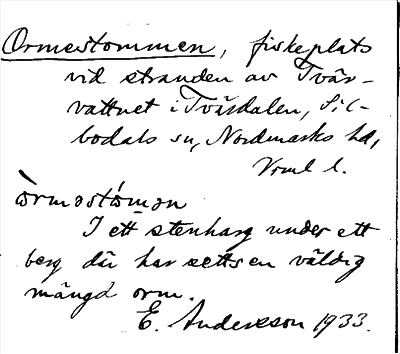 Ormestommen, fiskeplats
vid stranden av Tvär-
vattnet i Tvärdalen, Sil-
bodals sn, Nordmarks hd,
Vrml l.
òrməstómən
I ett stenharg under ett
berg där har setts en väldig
mängd orm.
E. Andersson 1933.